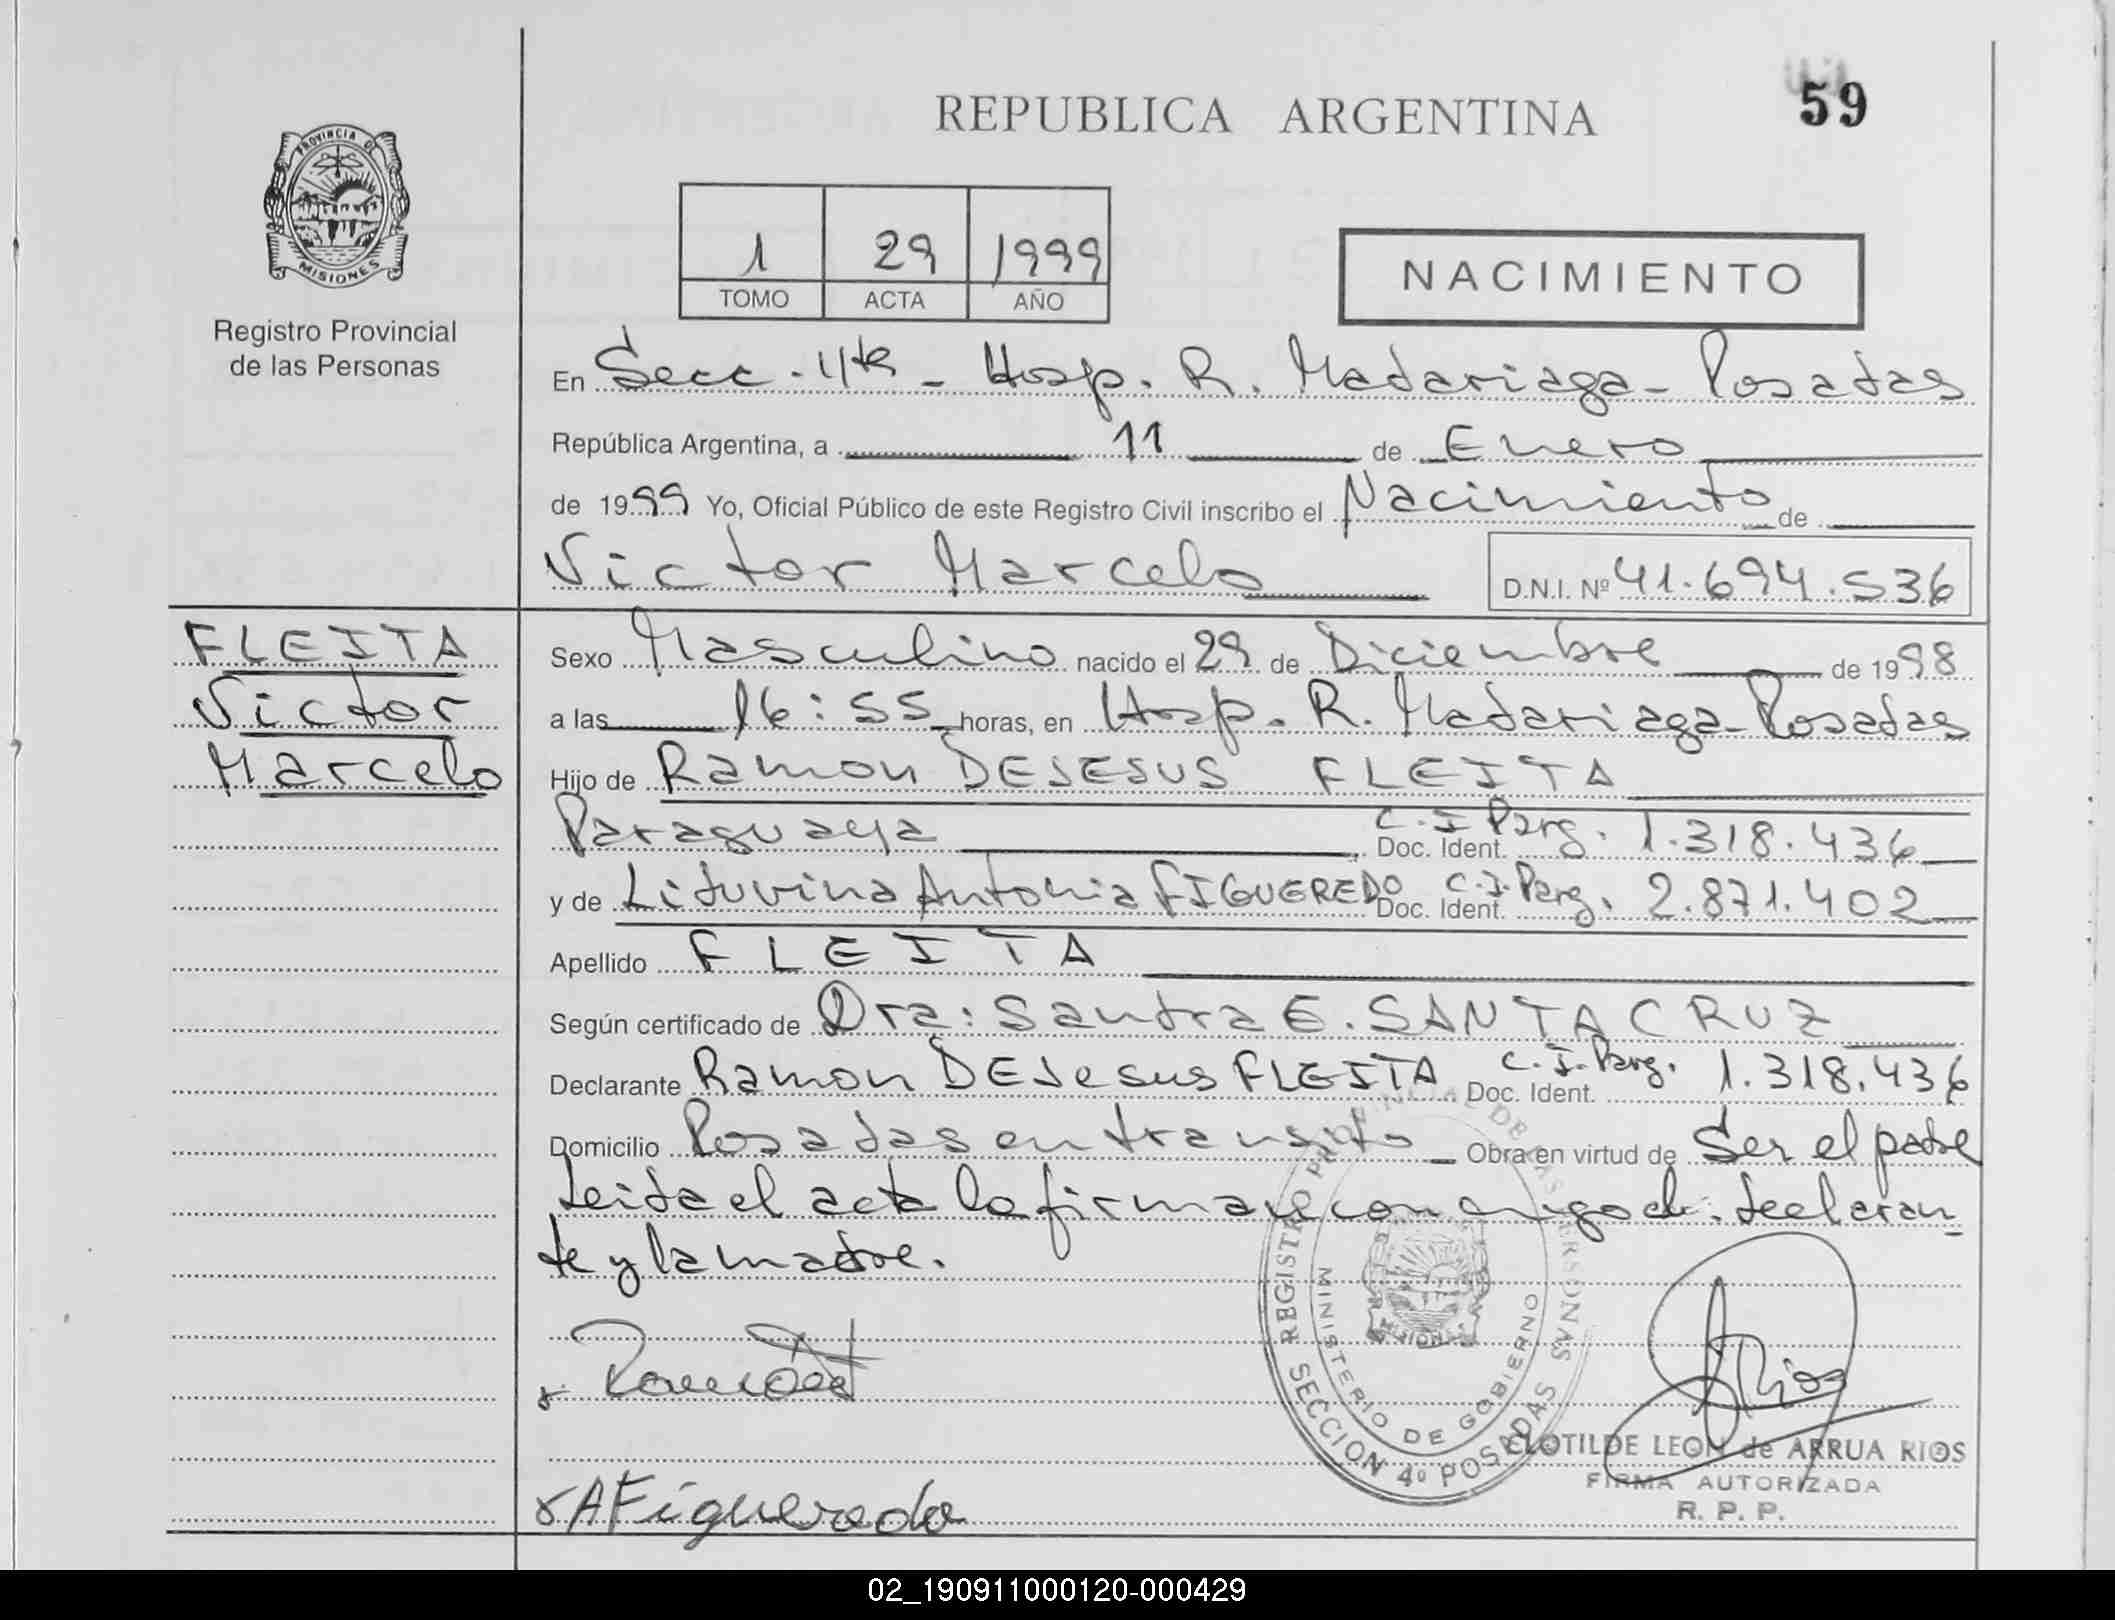 59
REPUBLICA ARGENTINA
PROVINCIA DE
MISIONES
Registro Provincial
de las Personas
1 29 1999
TOMO ACTA AÑO
NACIMIENTO
En Secc. 4ta - Hosp. R. Madariaga - Posadas
República Argentina, a 11 de Enero
de 1999 Yo, Oficial Público de este Registro Civil inscribo el Nacimiento de
Victor Marcelo D.N.I. Nº 41.694.536
FLEITA
Victor
Marcelo
Sexo Masculino nacido el 29 de Diciembre de 1998
a las 16:55 horas, en Hosp. R. Madariaga - Posadas
Hijo de Ramon DEJESUS FLEITA
Paraguaya Doc. Ident. C.I Parg. 1.318.436
y de Lituvina Antonia FIGUEREDO Doc. Ident. C.I. Parg. 2.871.402
Apellido FLEITA
Según certificado de Dra: Sandra E. SANTACRUZ
Declarante Ramon DEJesus FLEITA Doc. Ident. C.I. Parg. 1.318.436
Domicilio Posadas en transito Obra en virtud de Ser el padre
Leida el acta la firman conmigo el declaran-
te y la madre.
REGISTRO PROVINCIAL DE LAS PERSONAS
MINISTERIO DE GOBIERNO
SECCION 4º POSADAS
Rios
CLOTILDE LEON de ARRUA RIOS
FIRMA AUTORIZADA
R. P. P.
A Figueredo
02_190911000120-000429